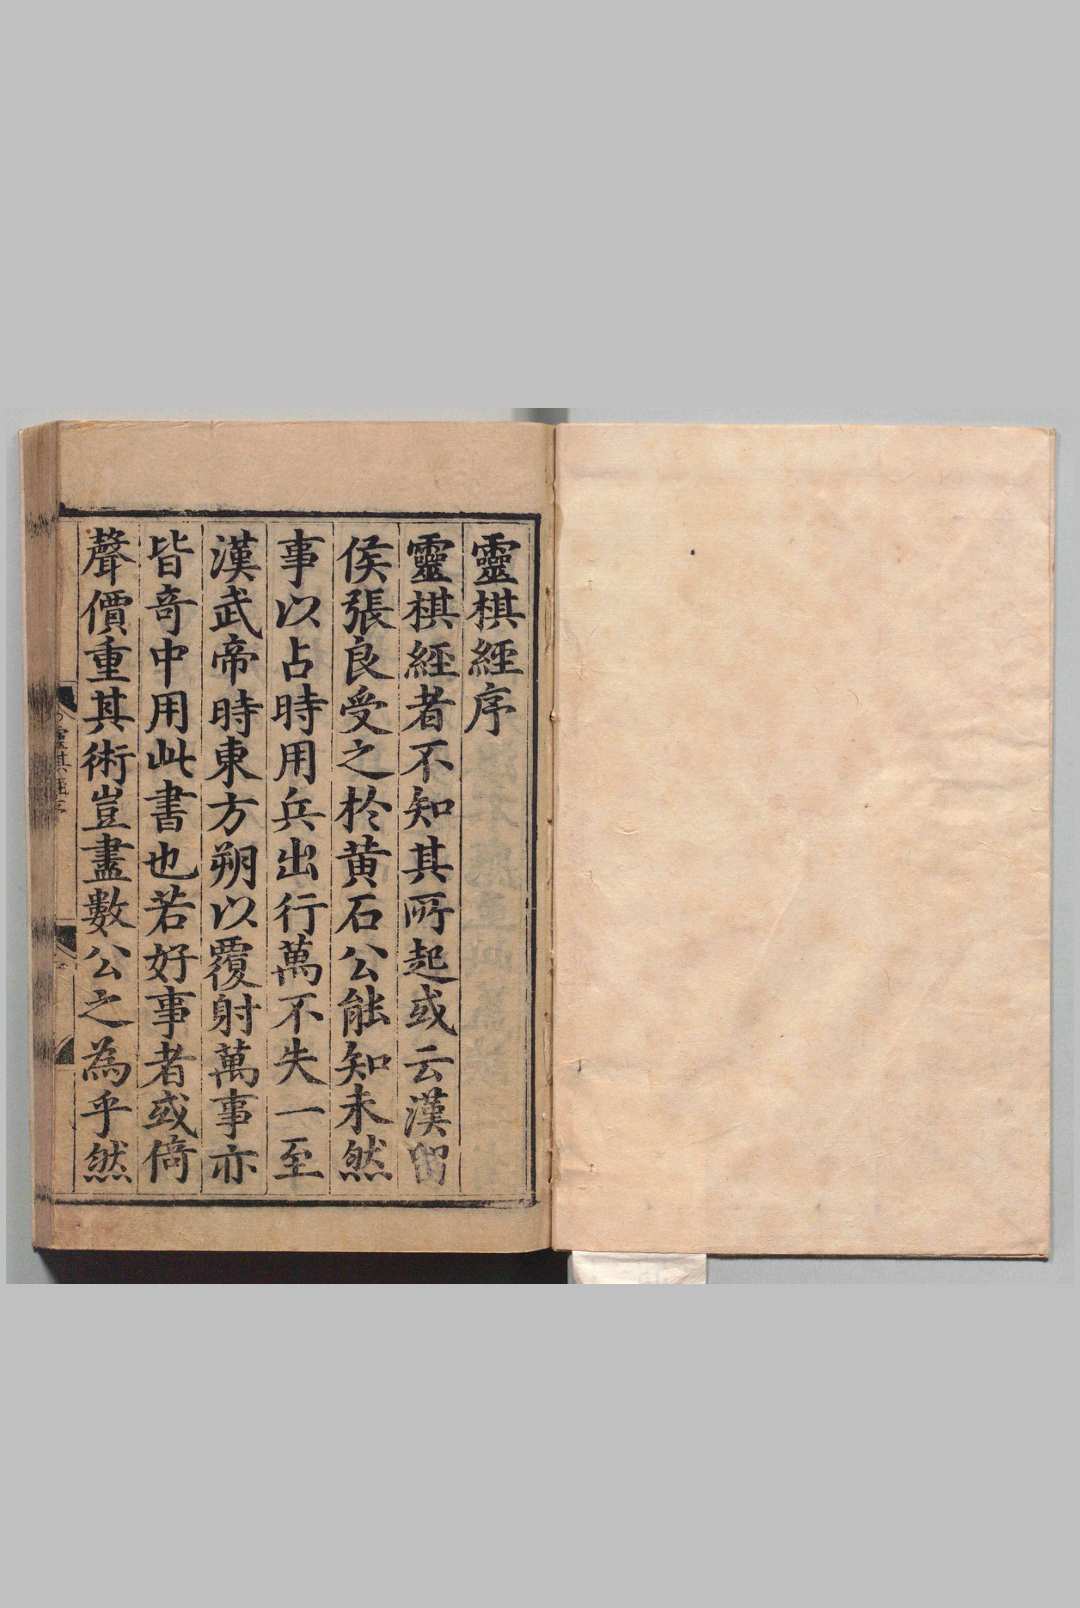 靈棋經序
靈棋經者不知其所起或云漢留
侯張良受之於黃石公能知未然
事以占時用兵出行萬不失一至
漢武帝時東方朔以覆射萬事亦
皆奇中用此書也若好事者或倚
聲價重其術豈盡數公之為乎然
靈棋經序